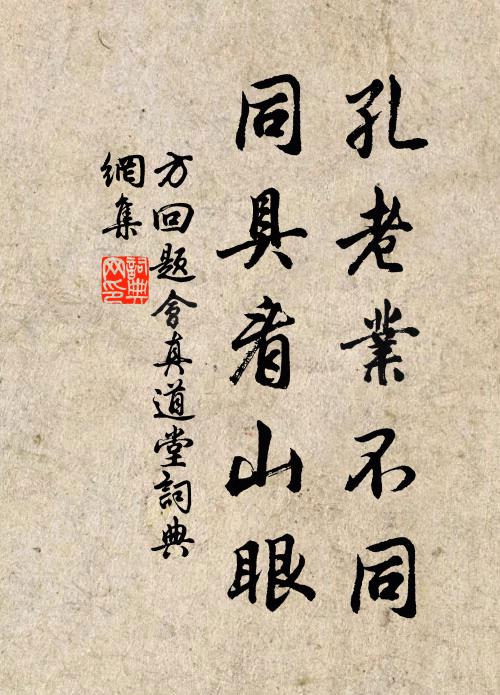 孔老業不同
同具看山眼
方回題會真道堂詞典
網集
詞典網印